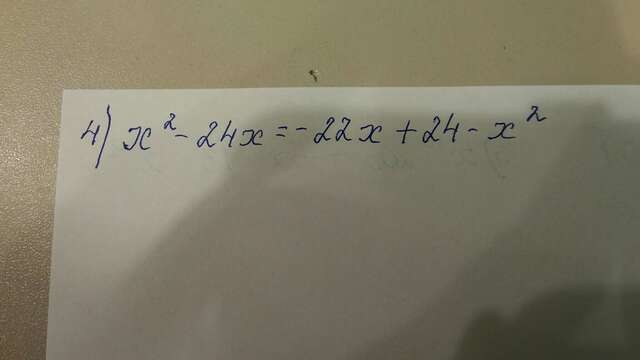 4) x² - 24x = - 22x + 24 - x²